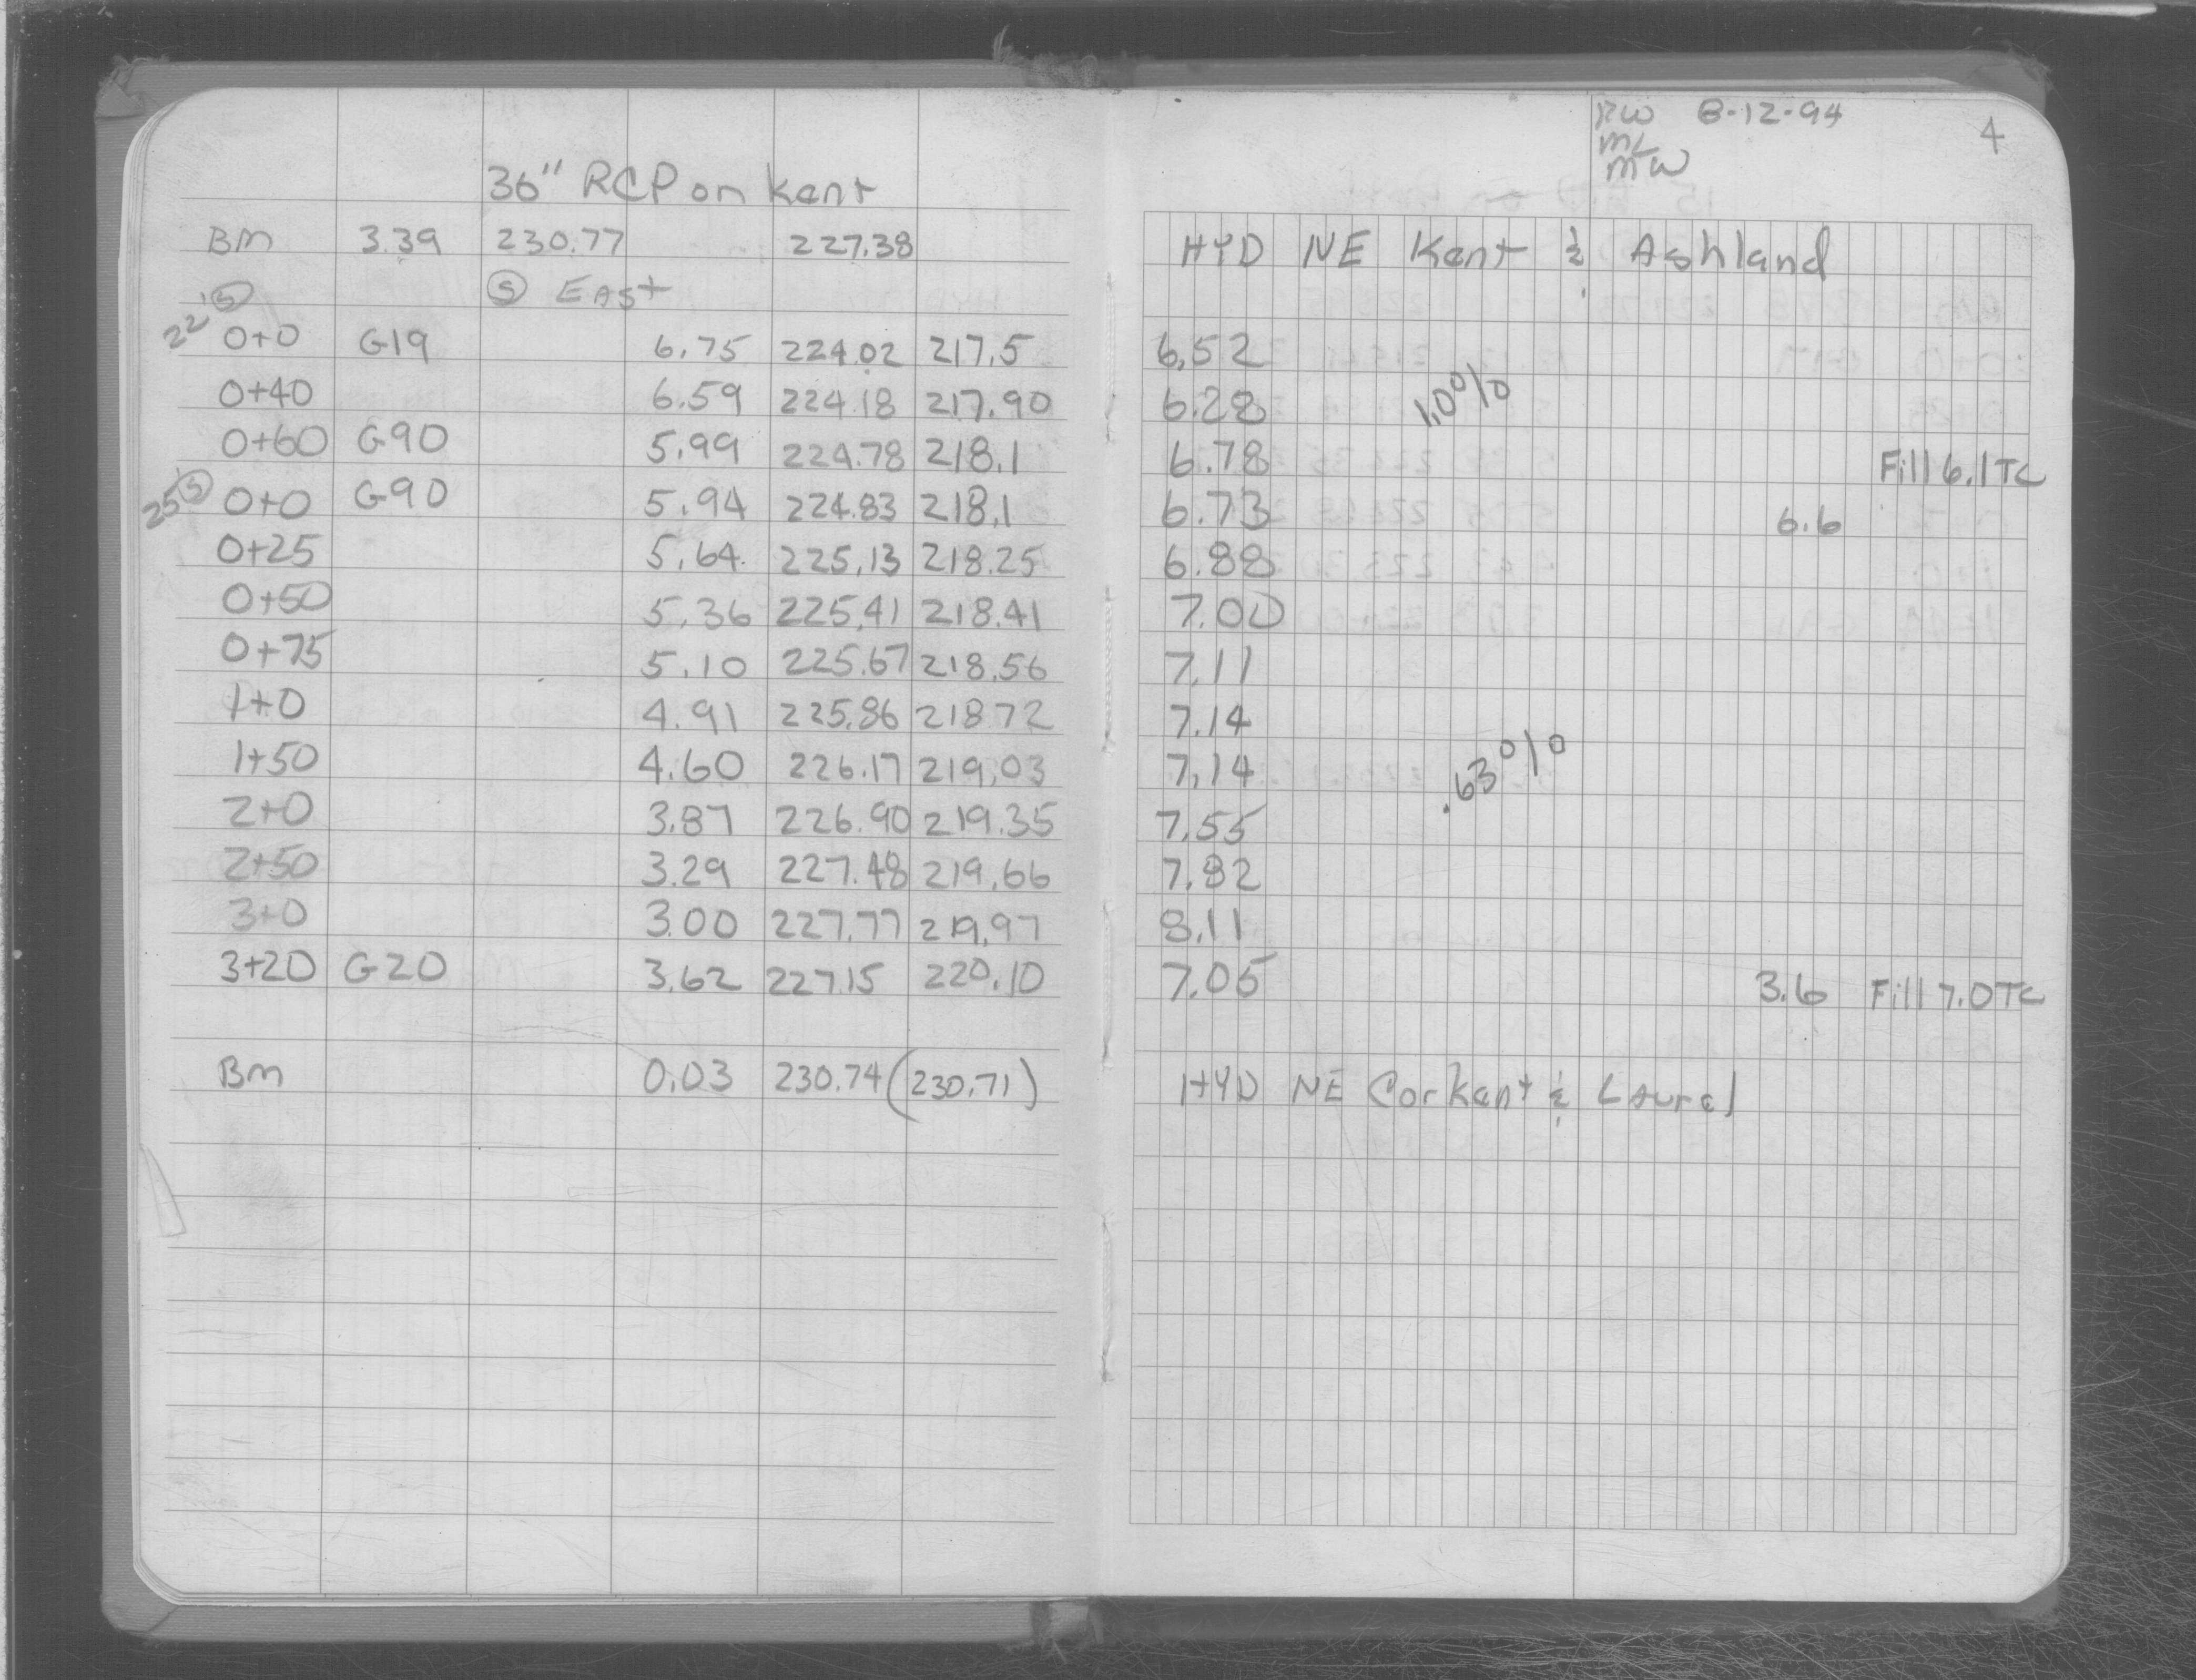 36" RCP on Kent
BM 3.39 230.77 227.38
Ⓢ East
22' Ⓢ
0+0 G19 6.75 224.02 217.5
0+40 6.59 224.18 217.90
0+60 G90 5.99 224.78 218.1
25 Ⓢ 0+0 G90 5.94 224.83 218.1
0+25 5.64 225.13 218.25
0+50 5.36 225.41 218.41
0+75 5.10 225.67 218.56
1+0 4.91 225.86 218 72
1+50 4.60 226.17 219.03
2+0 3.87 226.90 219.35
2+50 3.29 227.48 219.66
3+0 3.00 227.77 219.97
3+20 G20 3.62 227.15 220.10
BM 0.03 230.74 (230.71)
RW 8-12-94 4
ML
MW
HYD NE Kent & Ashland
6.52
6.28 1.0%
6.78 Fill 6.1 TC
6.73 6.6
6.88
7.00
7.11
7.14
7.14 .63%
7.55
7.82
8.11
7.05 3.6 Fill 7.0 TC
HYD NE Cor Kent & Laurel